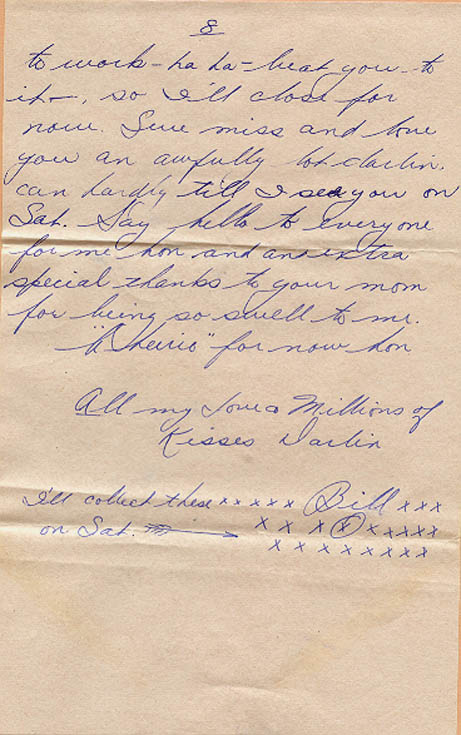 8
to work - ha ha - beat you to
it -, so I'll close for
now. Sure miss and love
you an awfully lot darlin.
can hardly till I see you on
Sat. Say hello to everyone
for me hon and an extra
special thanks to your mom
for being so swell to me.
"Cheerio" for now hon
All my Love & Millions of
Kisses Darlin
I'll collect these x x x x x Bill x x x
on Sat. x x x x x x x x x
x x x x x x x x